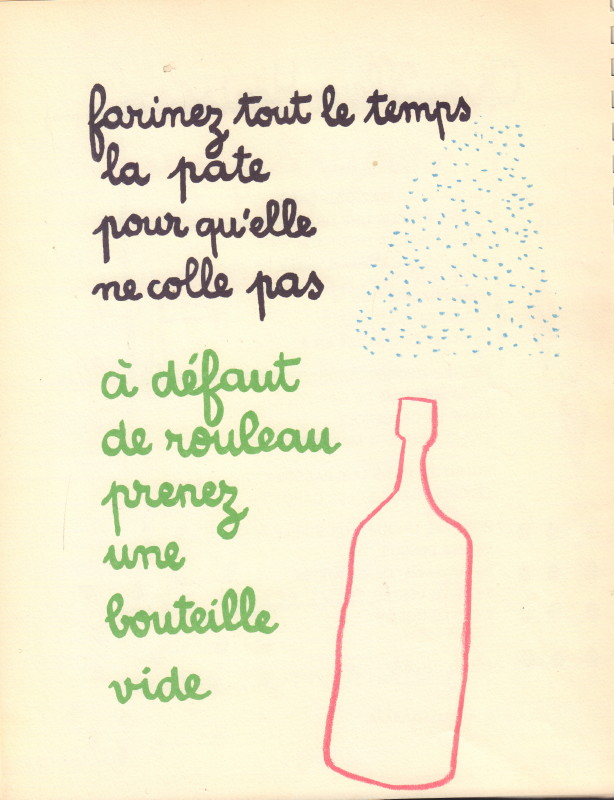 farinez tout le temps
la pate
pour qu'elle
ne colle pas
à défaut
de rouleau
prenez
une
bouteille
vide